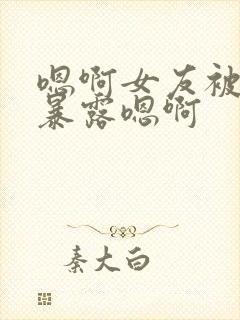 嗯啊女友被
暴露嗯啊
秦大白